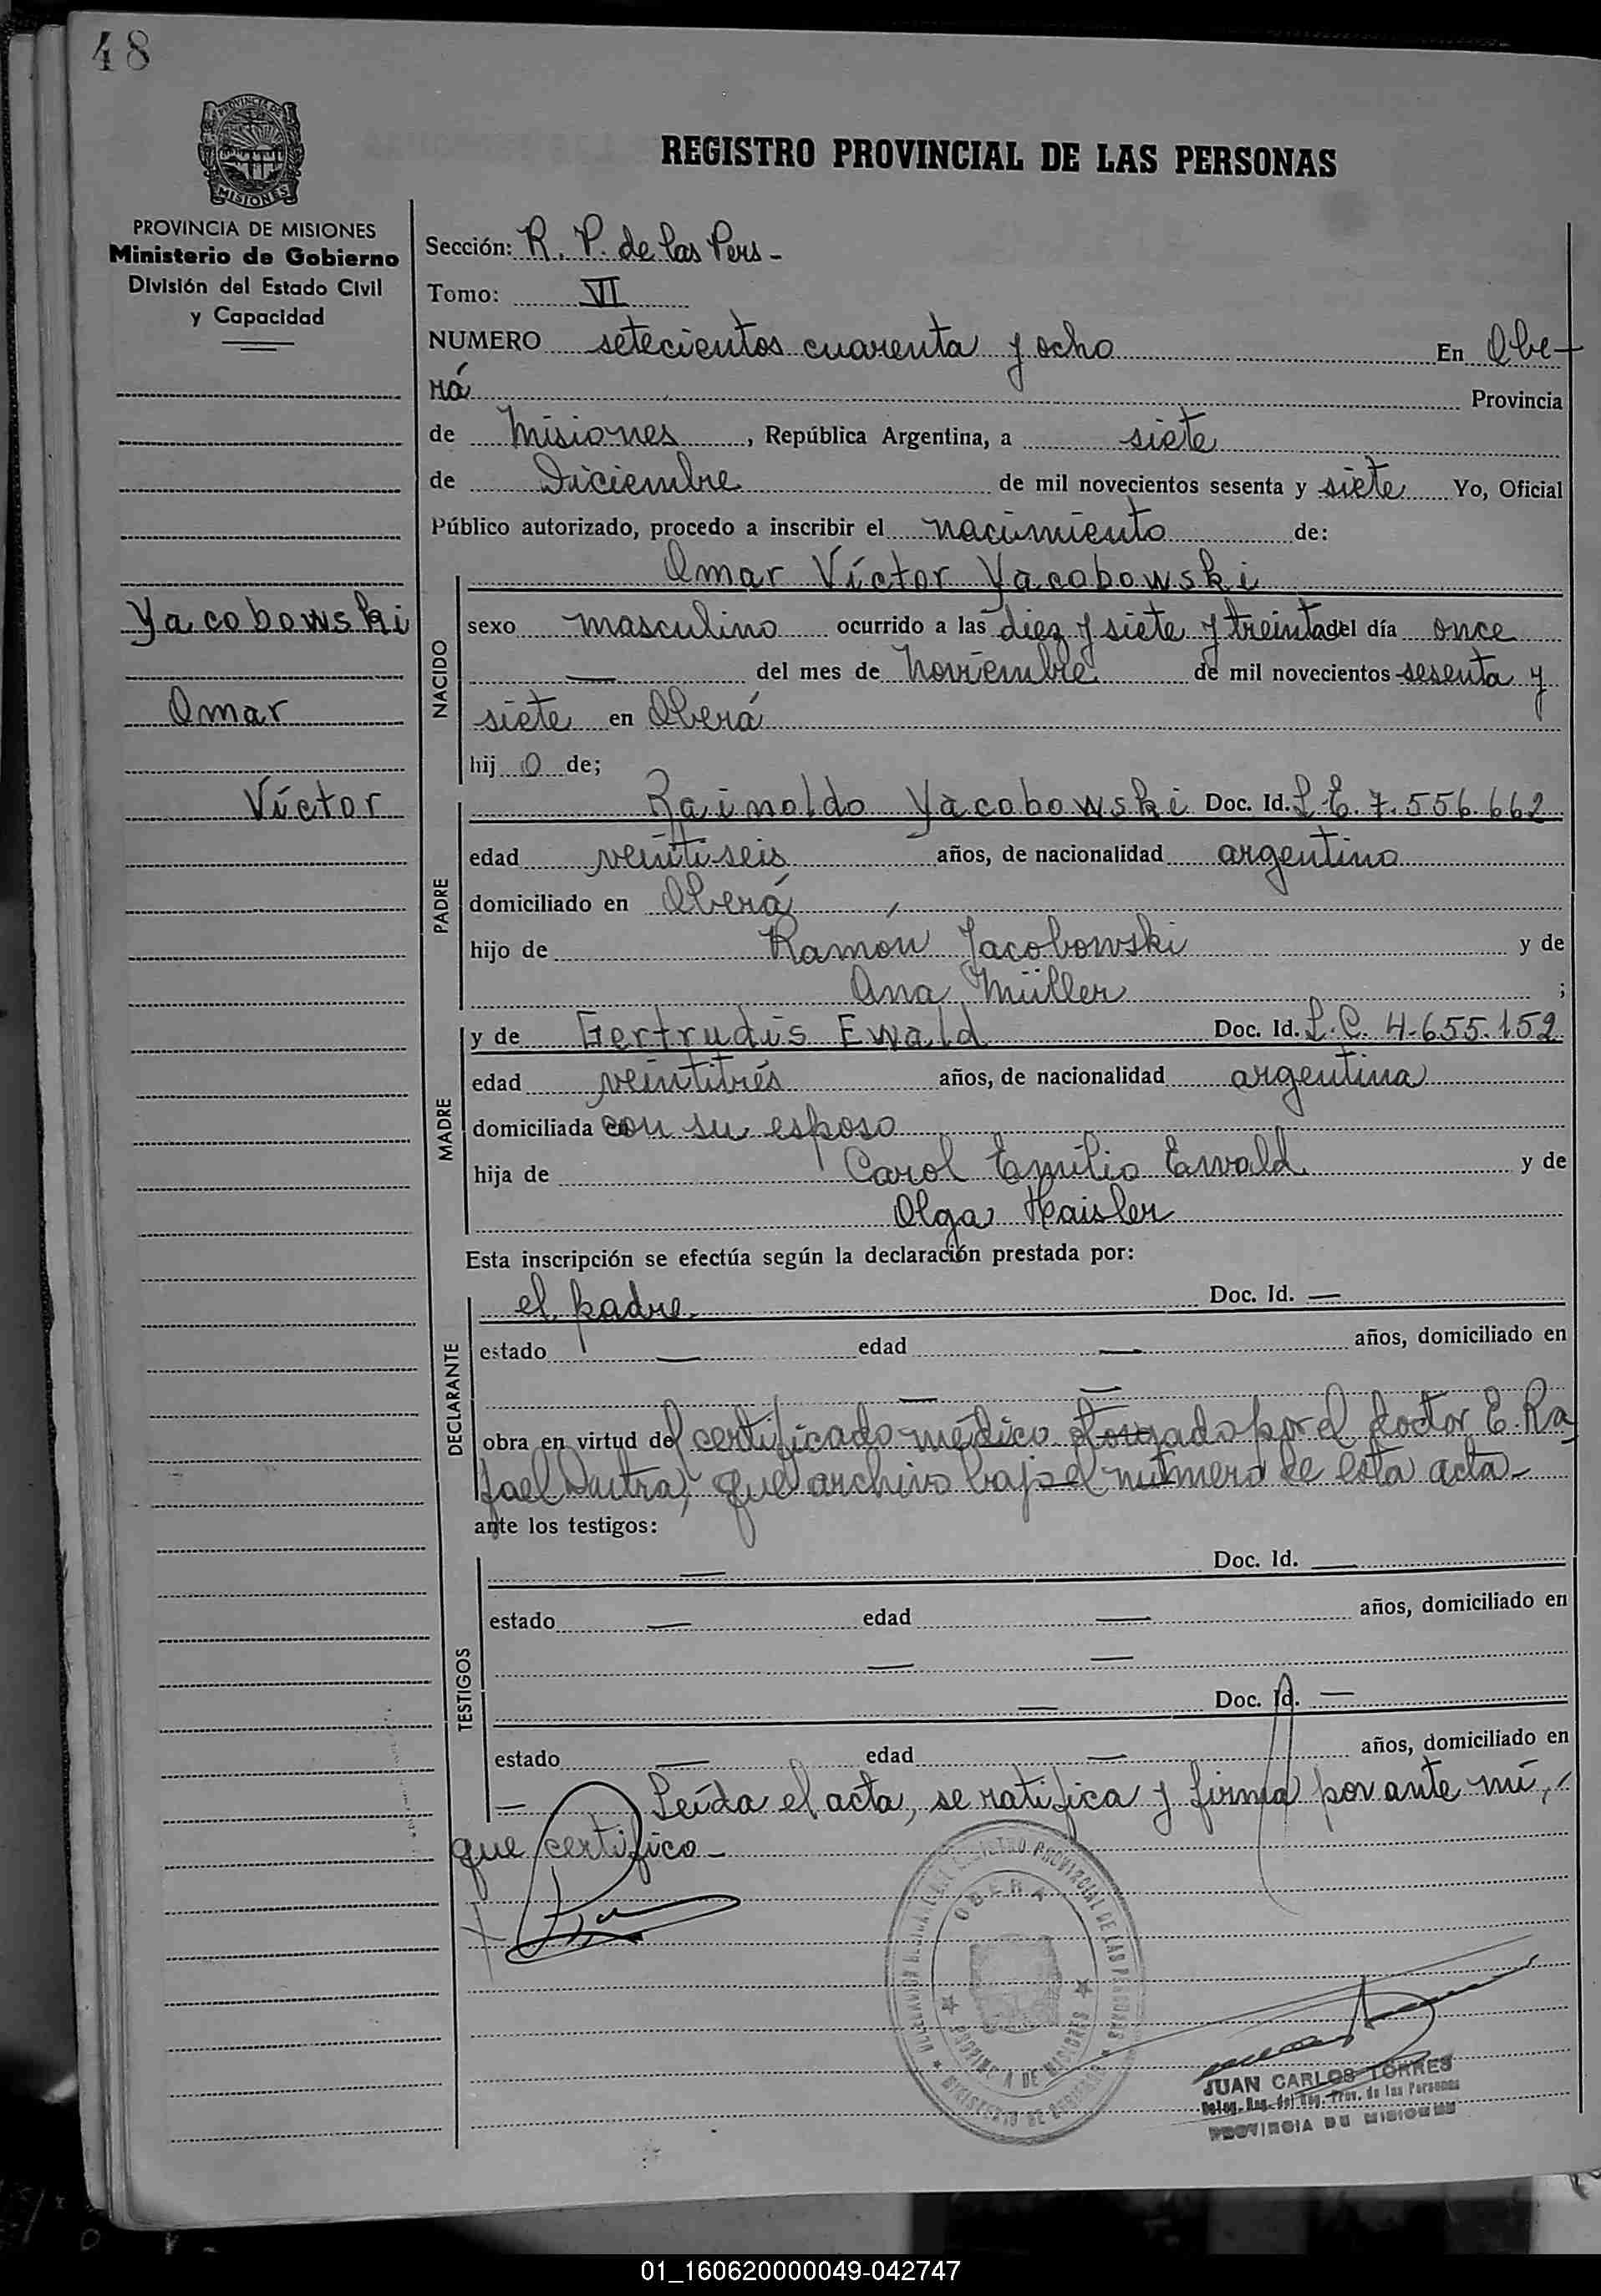 48
PROVINCIA DE
MISIONES
PROVINCIA DE MISIONES
Ministerio de Gobierno
División del Estado Civil
y Capacidad
Yacobowski
Omar
Víctor
REGISTRO PROVINCIAL DE LAS PERSONAS
Sección: R. P. de las Pers -
Tomo: VI
NUMERO setecientos cuarenta y ocho En Obe-
rá Provincia
de Misiones, República Argentina, a siete
de Diciembre de mil novecientos sesenta y siete Yo, Oficial
Público autorizado, procedo a inscribir el nacimiento de:
NACIDO
Omar Víctor Yacobowski
sexo masculino ocurrido a las diez y siete y treinta del día once
— del mes de Noviembre de mil novecientos sesenta y
siete en Oberá
hij o de;
PADRE
Rainoldo Yacobowski Doc. Id. L.E. 7.556.662
edad veinti-seis años, de nacionalidad argentino
domiciliado en Oberá
hijo de Ramón Jacobowski y de
Ana Müller ;
MADRE
y de Gertrudis Ewald Doc. Id. L.C. 4.655.152
edad veintitrés años, de nacionalidad argentina
domiciliada con su esposo
hija de Carol Emilio Ewald y de
Olga Haisler
Esta inscripción se efectúa según la declaración prestada por:
DECLARANTE
el padre Doc. Id. —
estado — edad — años, domiciliado en
— —
obra en virtud del certificado médico otorgado por el doctor E. Ra
fael que archivo bajo el número de esta acta -
ante los testigos:
TESTIGOS
— Doc. Id. —
estado — edad — años, domiciliado en
— —
— Doc. Id. —
estado — edad — años, domiciliado en
— Leída el acta, se ratifica y firma por ante mí,
que certifico -
REGISTRO PROVINCIAL DE LAS PERSONAS
OBERA
PROVINCIA DE MISIONES
MINISTERIO DE GOBIERNO
JUAN CARLOS TORRES
Deleg. Reg. del Reg. Prov. de las Personas
PROVINCIA DE MISIONES
01_160620000049-042747